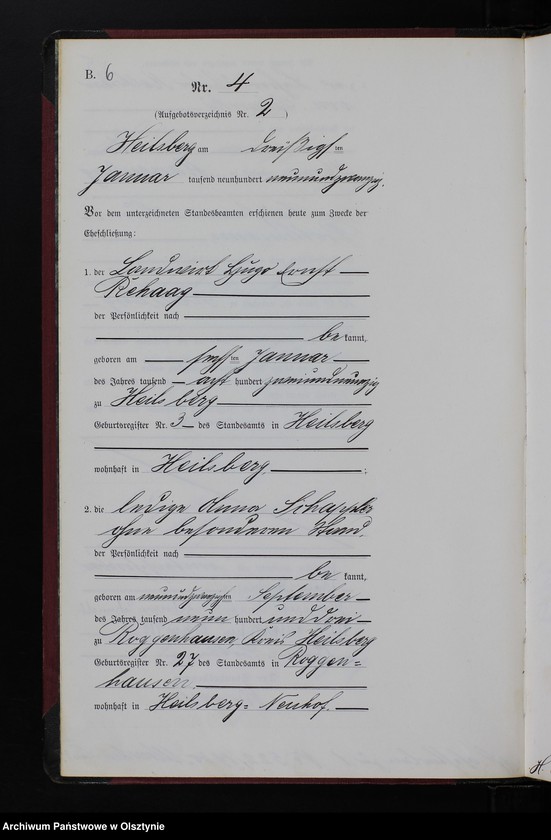 B. 6
Nr. 4
(Aufgebotsverzeichnis Nr. 2)
Heilsberg am dreißigsten
Januar tausend neunhundert neunundzwanzig.
Vor dem unterzeichneten Standesbeamten erschienen heute zum Zwecke der
Eheschließung:
1. der Landwirt Hugo Ernst
Rehaag
der Persönlichkeit nach
be kannt,
geboren am sechsten Januar
des Jahres tausend acht hundert zweiundneunzig
zu Heilsberg
Geburtsregister Nr. 3 des Standesamts in Heilsberg
wohnhaft in Heilsberg ;
2. die ledige Anna
ohne besonderen Stand,
der Persönlichkeit nach
be kannt,
geboren am neunundzwanzigsten September
des Jahres tausend neun hundert und drei
zu Roggenhausen, Kreis Heilsberg
Geburtsregister Nr. 27 des Standesamts in Roggen=
hausen,
wohnhaft in Heilsberg=Neuhof.
H.
Archiwum Państwowe w Olsztynie